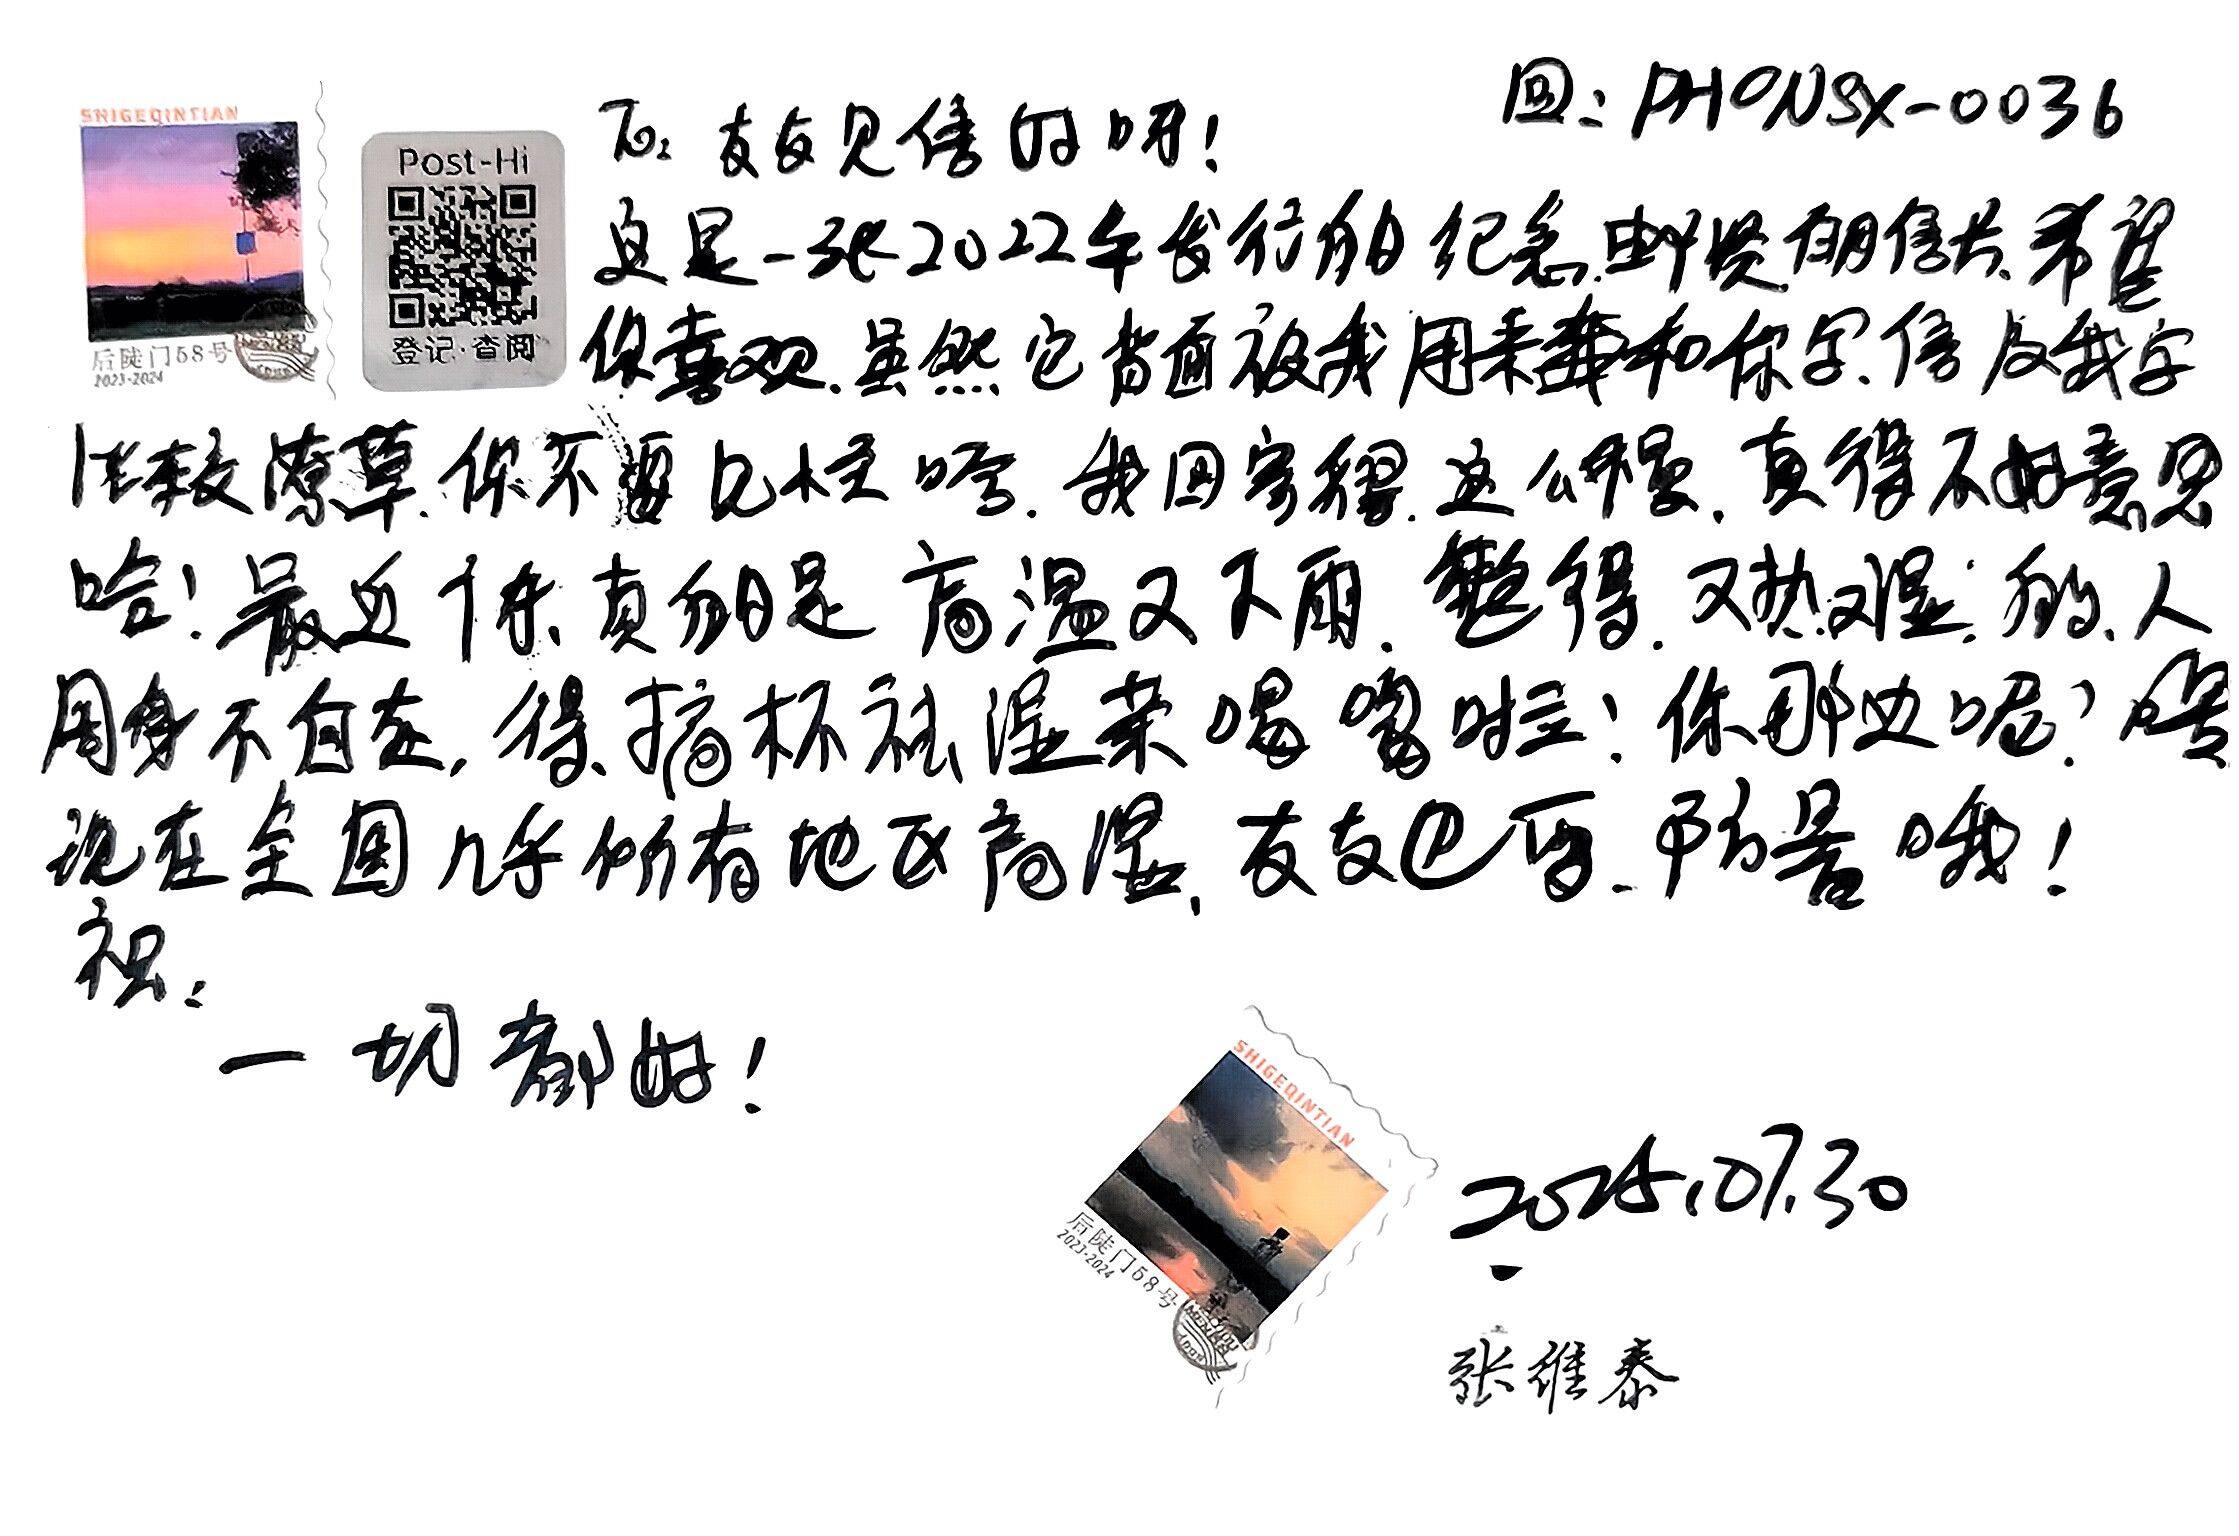 回：PHONSX-0036
SHIGEQINTIAN
Post-Hi
登记·查阅
后陡门58号
2023-2024
To：友友见信的呀！
这是一张2022年发行的纪念邮资明信片、希望
你喜欢.虽然它背面被我用来和你写信及我字
体较潦草.你不要见怪哈.我回寄得这么慢,真得不好意思
哈！最近 真的是高温又下雨.整得.又热又湿.的、人
周身不自在,得、搞杯祛湿茶喝喝啦！你那边呢？
现在全国几乎所有地区高温,友友也要防暑哦！
祝：
一切都好！
SHIGEQINTIAN
后陡门58号
2023-2024
2025.07.30
张维泰